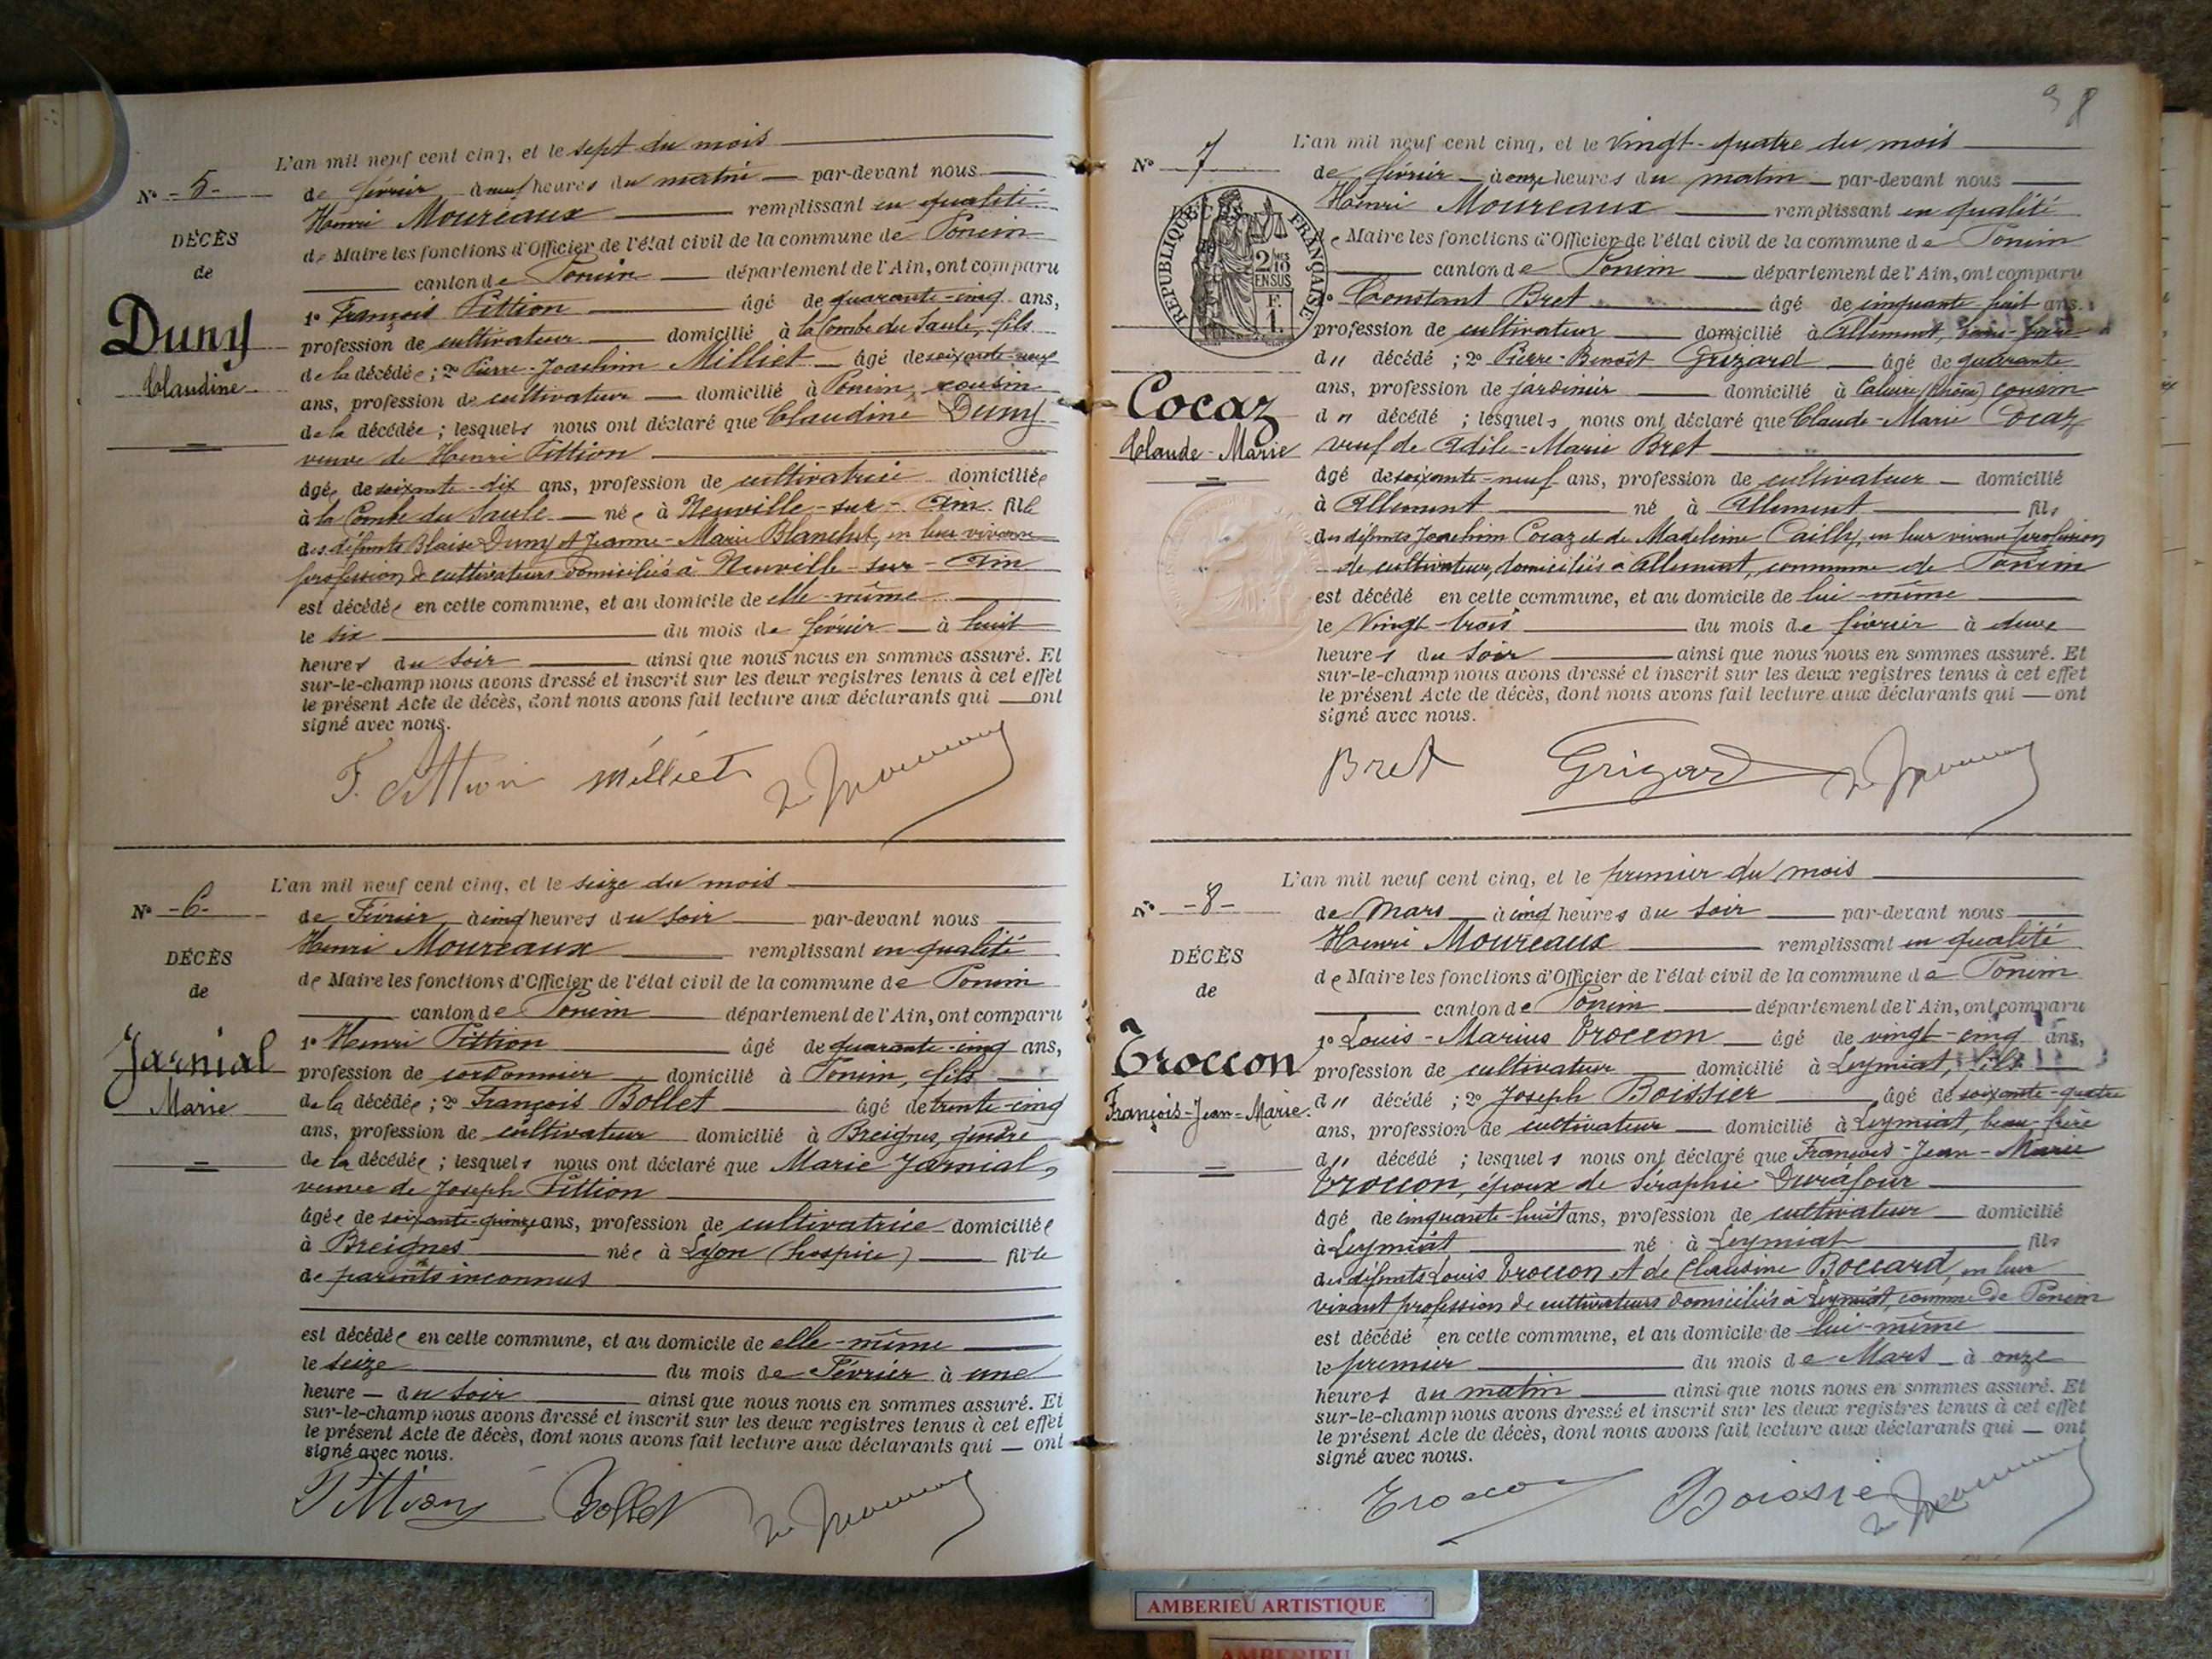 L'an mil neuf cent cinq, et le sept du mois
N° - 5 -
de février à neuf heures du matin par-devant nous
Henri Moureaux remplissant en qualité
DÉCÈS
de Maire les fonctions d'Officier de l'état civil de la commune de Poncin
de
canton de Poncin département de l'Ain, ont comparu
1° François Pittion âgé de quarante-cinq ans,
Duny
profession de cultivateur domicilié à la Combe du Saule, fils
de la décédée ; 2° Pierre-Joachim Milliet âgé de soixante-neuf
Claudine
ans, profession de cultivateur domicilié à Poncin, cousin
de la décédée ; lesquels nous ont déclaré que Claudine Duny
veuve de Henri Pittion
âgée de soixante-dix ans, profession de cultivatrice domiciliée
à la Combe du Saule née à Neuville-sur-Ain fille
des défunts Blaise Duny et Jeanne-Marie Blanchet, en leur vivant
profession de cultivateurs domiciliés à Neuville-sur-Ain
est décédée en cette commune, et au domicile de elle-même
le six du mois de février à huit
heures du soir ainsi que nous nous en sommes assuré. Et
sur-le-champ nous avons dressé et inscrit sur les deux registres tenus à cet effet
le présent Acte de décès, dont nous avons fait lecture aux déclarants qui ont
signé avec nous.
F. Pittion Milliet
L'an mil neuf cent cinq, et le seize du mois
N° - 6 -
de Février à cinq heures du soir par-devant nous
Henri Moureaux remplissant en qualité
DÉCÈS
de Maire les fonctions d'Officier de l'état civil de la commune de Poncin
de
canton de Poncin département de l'Ain, ont comparu
1° Henri Pittion âgé de quarante-cinq ans,
Jarnial
profession de cordonnier domicilié à Poncin, fils
Marie
de la décédée ; 2° François Bollet âgé de trente-cinq
ans, profession de cultivateur domicilié à Breignes, gendre
de la décédée ; lesquels nous ont déclaré que Marie Jarnial,
veuve de Joseph Pittion
âgée de soixante-quinze ans, profession de cultivatrice domiciliée
à Breignes née à Lyon (hospice) fille
de parents inconnus
est décédée en cette commune, et au domicile de elle-même
le seize du mois de Février à une
heure du soir ainsi que nous nous en sommes assuré. Et
sur-le-champ nous avons dressé et inscrit sur les deux registres tenus à cet effet
le présent Acte de décès, dont nous avons fait lecture aux déclarants qui ont
signé avec nous.
Pittion Bollet
98
L'an mil neuf cent cinq, et le vingt-quatre du mois
N° 7
de février à onze heures du matin par-devant nous
Henri Moureaux remplissant en qualité
DÉCÈS
RÉPUBLIQUE FRANÇAISE
2/10 EN SUS
F. 1.
de Maire les fonctions d'Officier de l'état civil de la commune de Poncin
canton de Poncin département de l'Ain, ont comparu
1° Constant Bret âgé de cinquante-huit ans.
profession de cultivateur domicilié à Allement, beau-frère
du décédé ; 2° Pierre-Benoît Grizard âgé de quarante
Cocaz
ans, profession de jardinier domicilié à Caluire (Rhône) cousin
du décédé ; lesquels nous ont déclaré que Claude-Marie Cocaz
Claude-Marie
veuf de Adèle-Marie Bret
âgé de soixante-neuf ans, profession de cultivateur domicilié
à Allement né à Allement fils
des défunts Joachim Cocaz et de Madeleine Cailly, en leur vivant profession
de cultivateur, domiciliés à Allement, commune de Poncin
est décédé en cette commune, et au domicile de lui-même
le vingt-trois du mois de février à deux
heures du soir ainsi que nous nous en sommes assuré. Et
sur-le-champ nous avons dressé et inscrit sur les deux registres tenus à cet effet
le présent Acte de décès, dont nous avons fait lecture aux déclarants qui ont
signé avec nous.
Bret Grizard
L'an mil neuf cent cinq, et le premier du mois
N° - 8 -
de Mars à cinq heures du soir par-devant nous
Henri Moureaux remplissant en qualité
DÉCÈS
de Maire les fonctions d'Officier de l'état civil de la commune de Poncin
de
canton de Poncin département de l'Ain, ont comparu
1° Louis-Marius Troccon âgé de vingt-cinq ans,
Troccon
profession de cultivateur domicilié à Leymiat, fils
François-Jean-Marie.
du décédé ; 2° Joseph Boissier âgé de soixante-quatre
ans, profession de cultivateur domicilié à Leymiat, beau-frère
du décédé ; lesquels nous ont déclaré que François-Jean-Marie
Troccon, époux de Séraphie Durafour
âgé de cinquante-huit ans, profession de cultivateur domicilié
à Leymiat né à Leymiat fils
des défunts Louis Troccon et de Clausine Boccard, en leur
vivant profession de cultivateurs domiciliés à Leymiat, comme de Poncin
est décédé en cette commune, et au domicile de lui-même
le premier du mois de Mars à onze
heures du matin ainsi que nous nous en sommes assuré. Et
sur-le-champ nous avons dressé et inscrit sur les deux registres tenus à cet effet
le présent Acte de décès, dont nous avons fait lecture aux déclarants qui ont
signé avec nous.
Troccon Boissie
AMBERIEU ARTISTIQUE
AMBERIEU